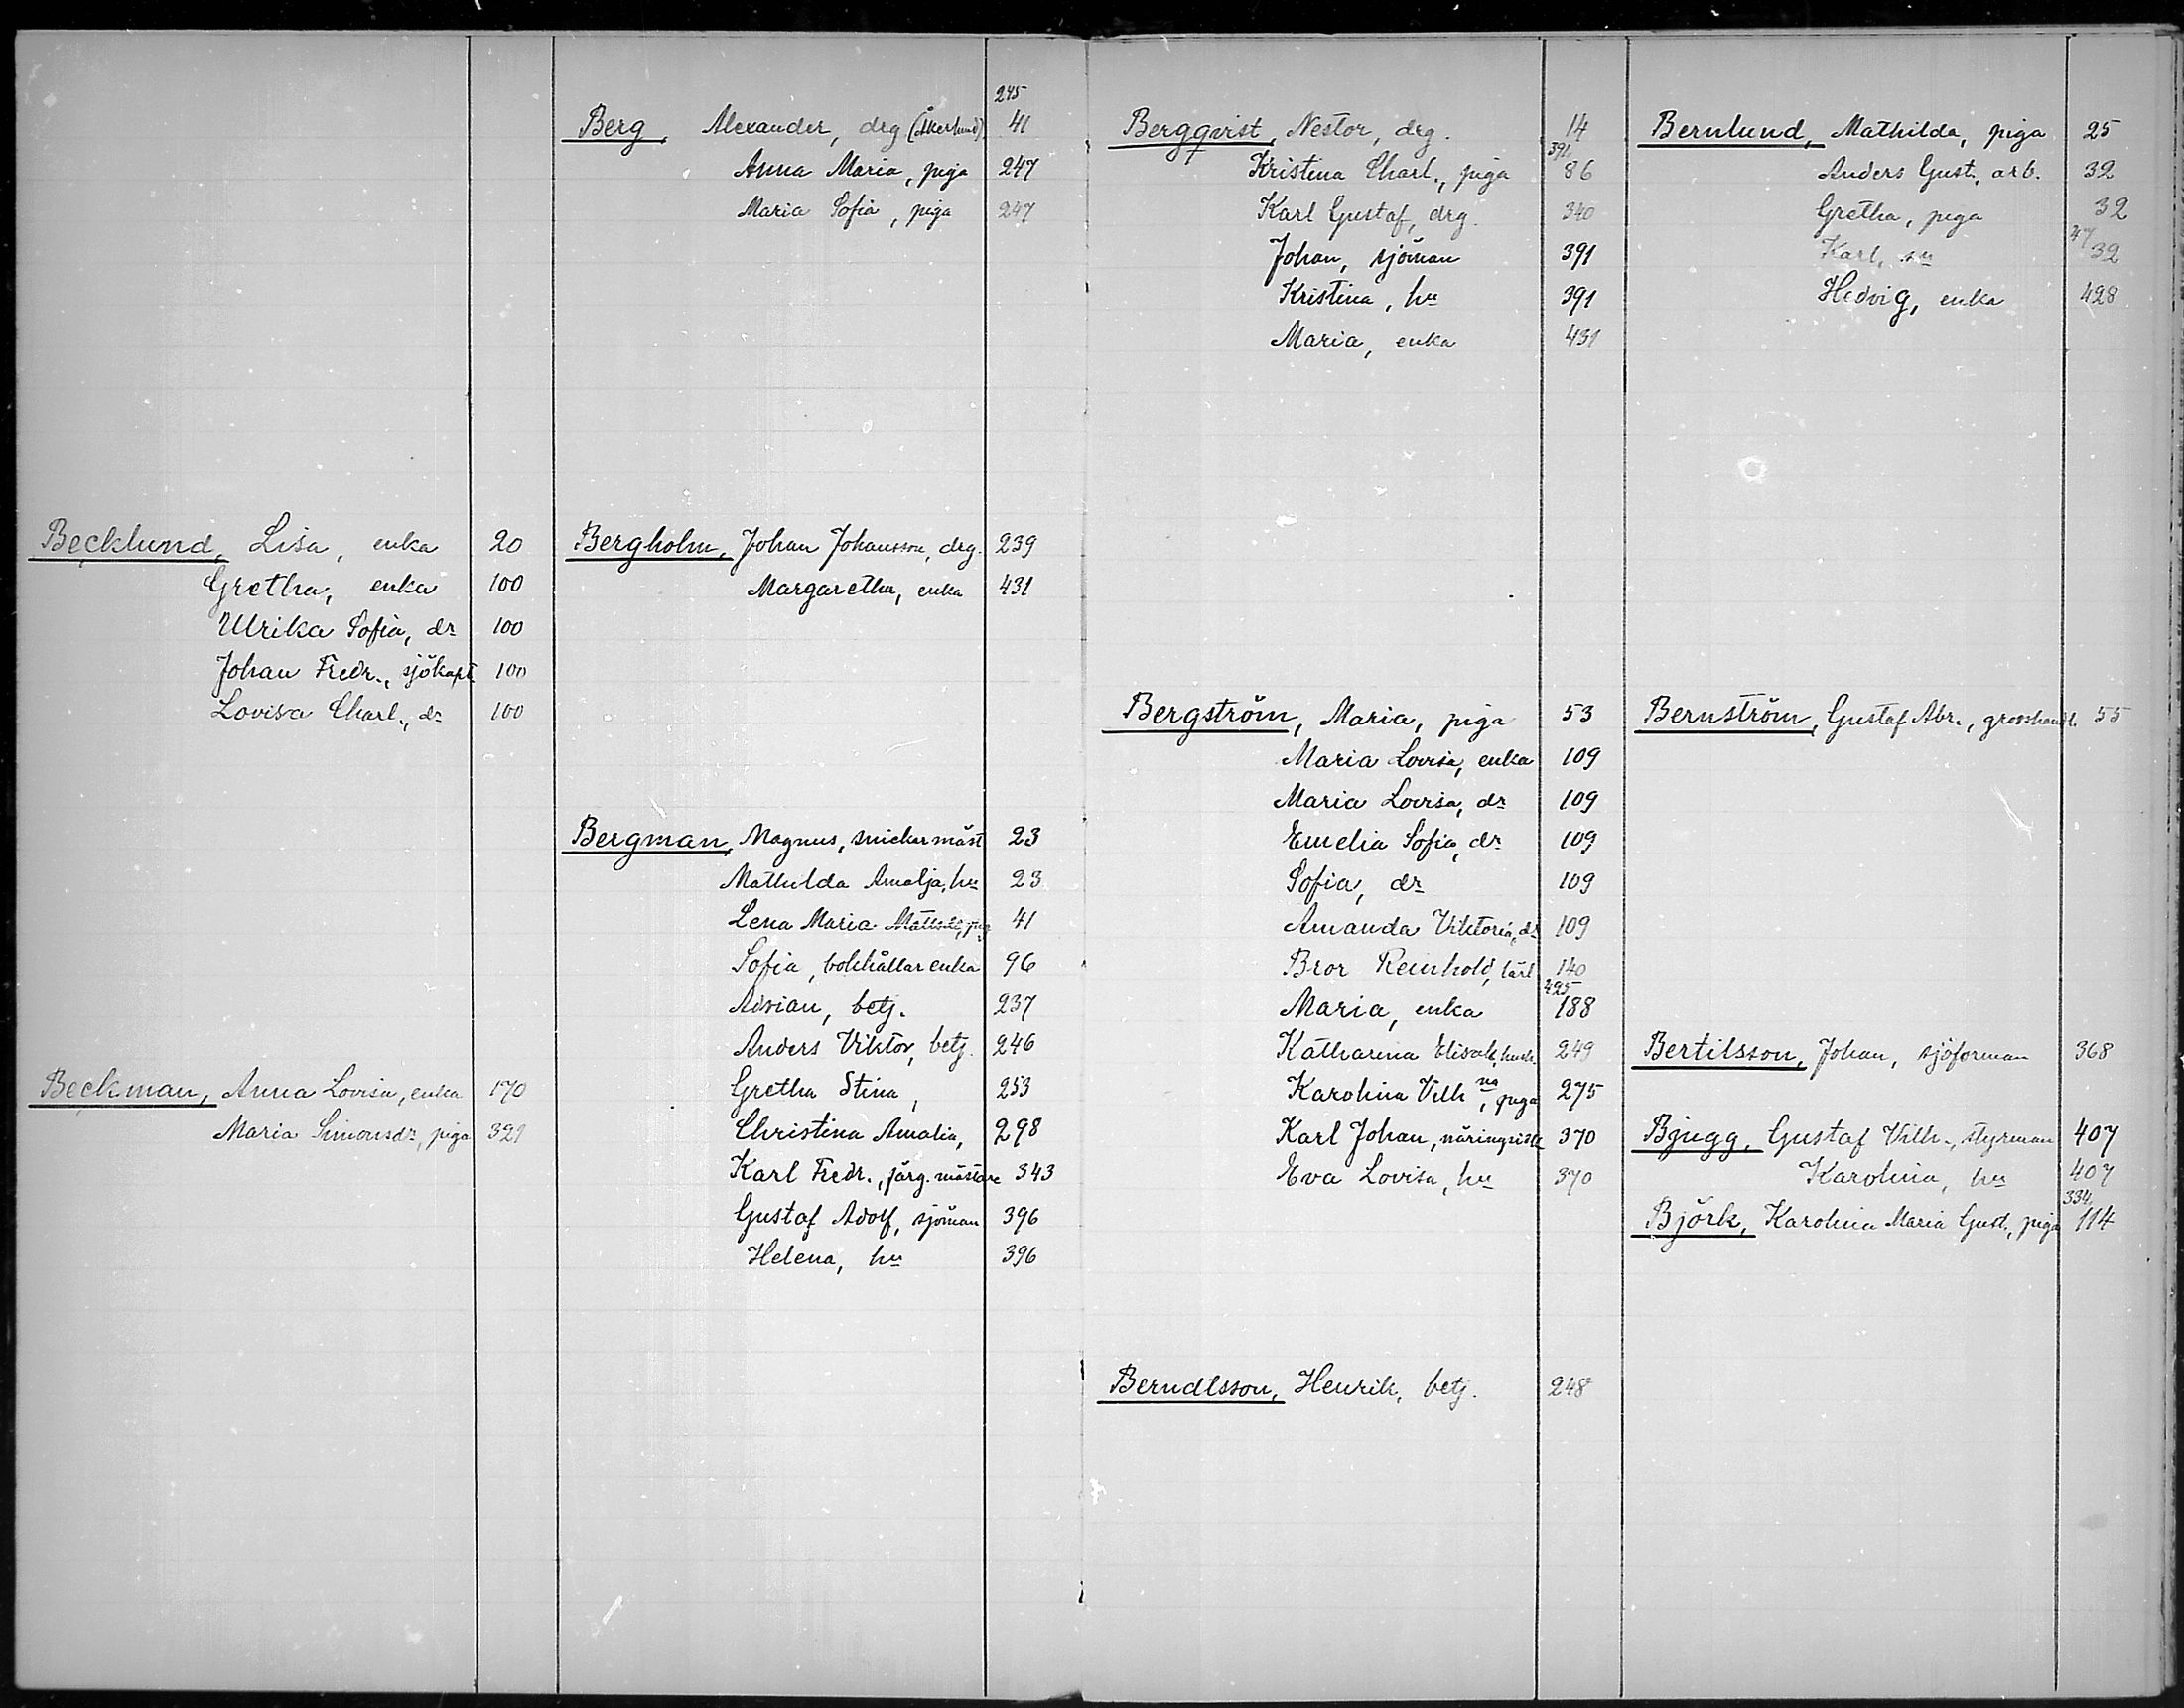 Becklund, Lisa, enka 20
Gretha, enka 100
Ulrika Sofia, dr 100
Johan Fredr., sjökapt. 100
Lovisa Charl., dr 100
Beckman, Anna Lovisa, enka 170
Maria Simonsdr, piga 321
245
Berg, Alexander, drg (Åkerlund) 41
Anna Maria, piga 247
Maria Sofia, piga 247
Bergholm, Johan Johansson, drg. 239
Margaretha, enka 431
Bergman, Magnus, snickarmäst 23
Mathilda Amalja, hu 23
Lena Maria 41
Sofia, bokhållar enka 96
Adrian, betj. 237
Anders Viktor, betj. 246
Gretha Stina, 253
Christina Amalia, 298
Karl Fredr., färg. mästare 343
Gustaf Adolf, sjöman 396
Helena, hu 396
Bergqvist, Nestor, drg. 14
391
Kristina Charl., piga 86
Karl Gustaf, drg. 340
Johan, sjöman 391
Kristina, hu 391
Maria, enka 431
Bergström, Maria, piga 53
Maria Lovisa, enka 109
Maria Lovisa, dr 109
Emelia Sofia, dr 109
Sofia, dr 109
Amanda Viktoria, dr 109
Bror Reinhold, lärl 140
425
Maria, enka 188
Katharina Elisab., hush. 249
Karolina Vilh na, piga 275
Karl Johan, näringsidk 370
Eva Lovisa, hu 370
Berndtsson, Henrik, betj. 248
Bernlund, Mathilda, piga 25
Anders Gust., arb. 32
Gretha, piga 32
47
Karl, sn 32
Hedvig, enka 428
Bernström, Gustaf Abr., grosshandl. 55
Bertilsson, Johan, sjöforman 368
Bjugg, Gustaf Vilh., styrman 407
Karolina, hu 407
334
Björk, Karolina Maria Gust., piga 114